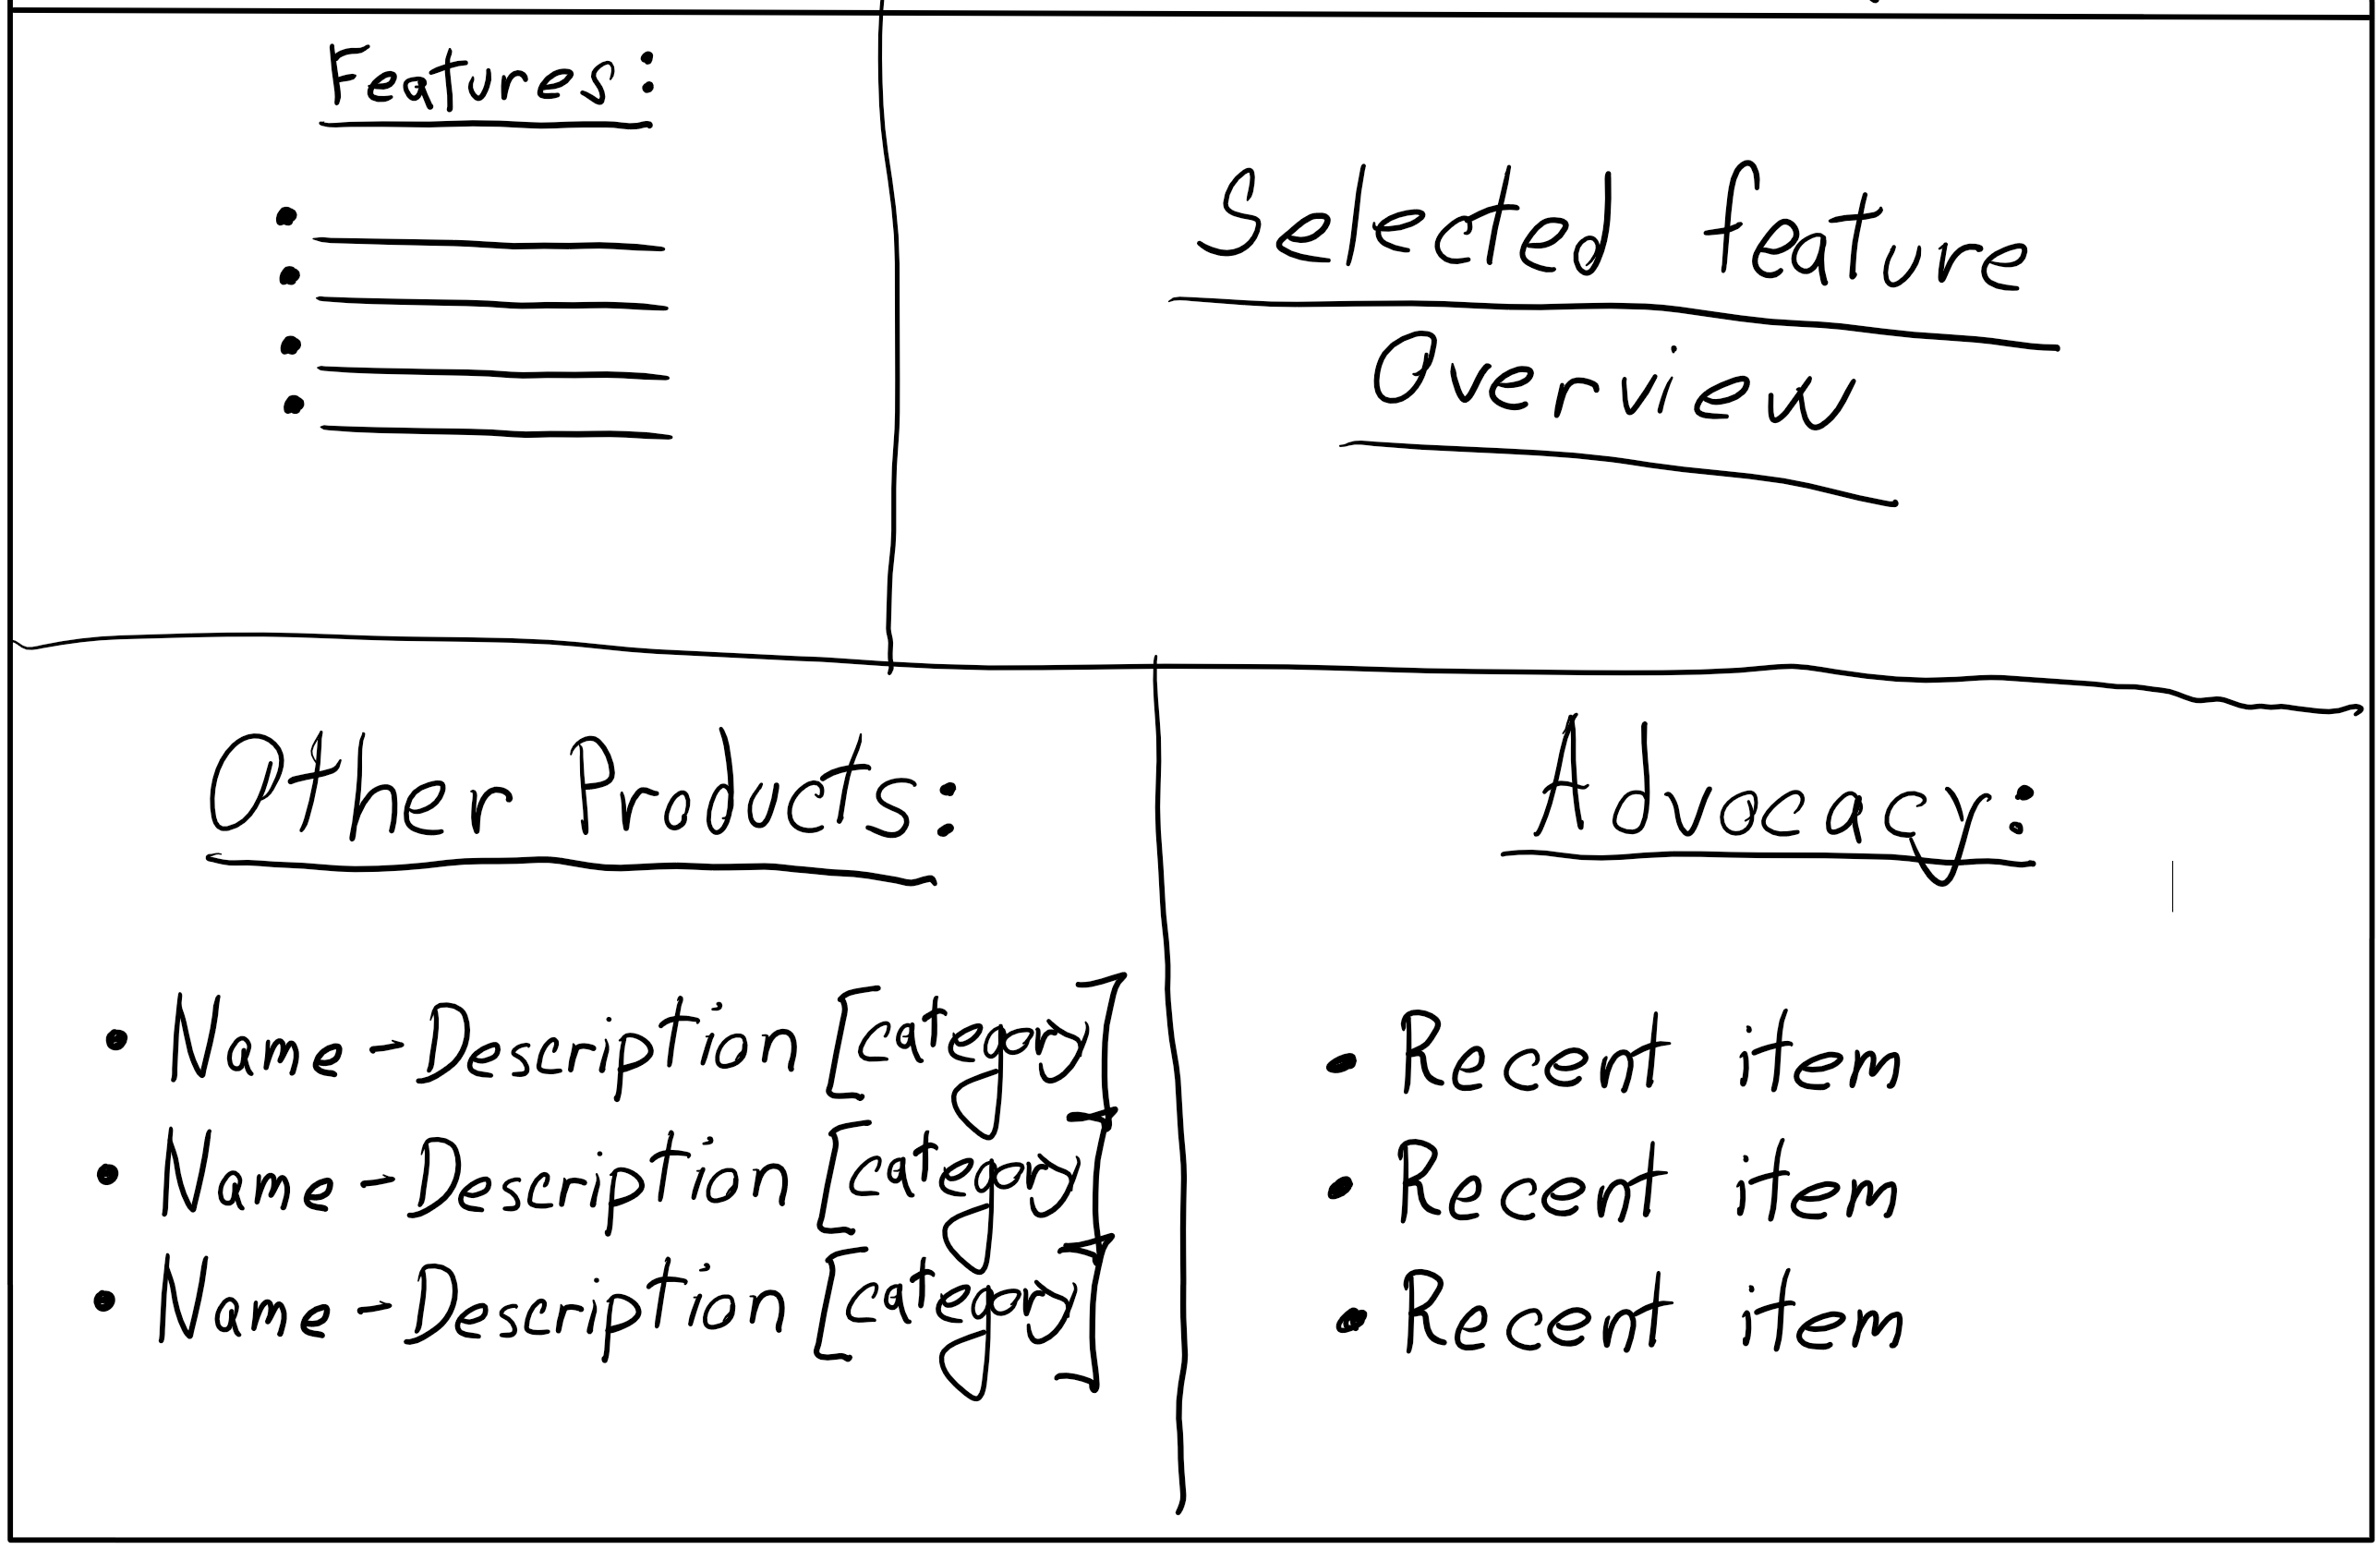 Features:
Selected feature
Overview
Other Products:
• Name - Description [category]
• Name - Description [category]
• Name - Description [category]
Advocacy:
• Recent item
• Recent item
• Recent item